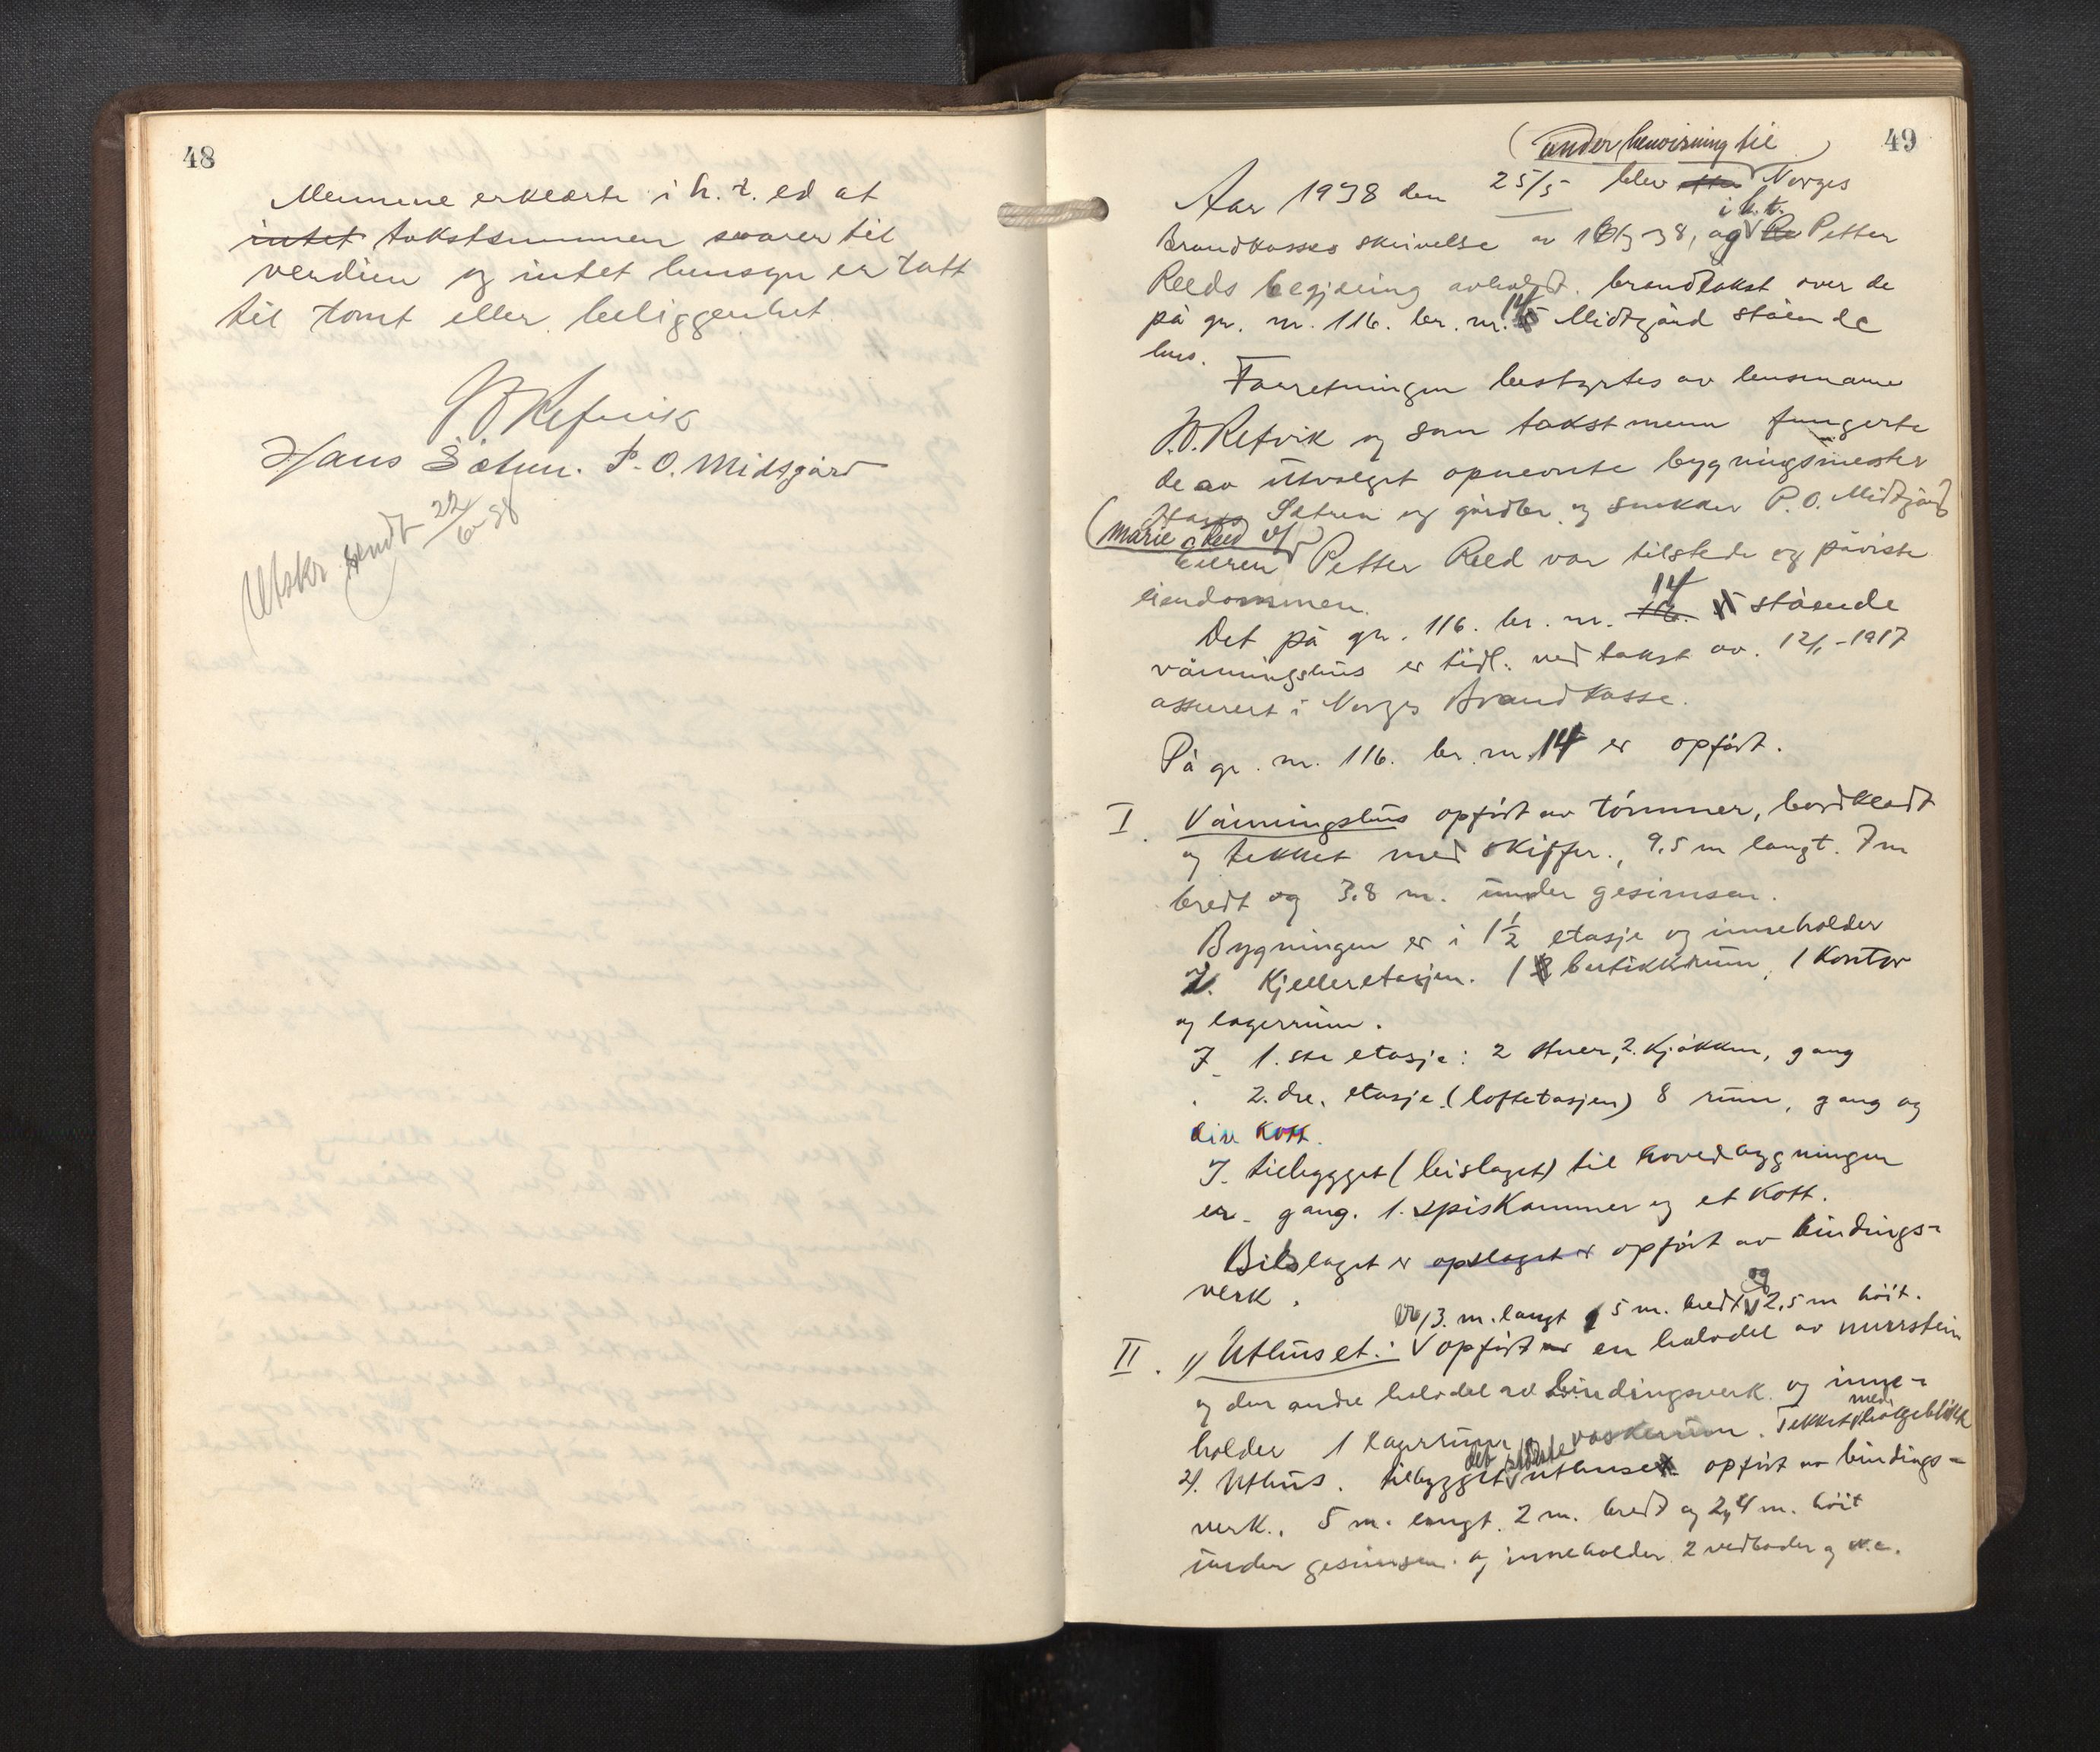 48
Mennene erklærte i h. t. ed at
intet takstsummen svarer til
verdien og intet hensyn er tatt
til tomt eller beliggenhet.
Refvik
Hans Sætren. P. O. Midtgård
Utskr. sendt 22/6-38
49
(under henvisning til)
Aar 1938 den 25/5 blev efter Norges
i h. t.
Brandkasses skrivelse av 38, og Petter
Reeds begjæring avholdt brandtakst over de
på gr. nr. 116. br. nr. 14 Midtgård stående
hus.
Forretningen bestyrtes av lensmann
Refvik og som takstmenn fungerte
de av utvalget opnevnte bygningsmester
Hans Sætren og gårdbr. og snekker P. O. Midtgård
(Marie Reed v/)
Eieren Petter Reed var tilstede og påviste
eiendommen.
14
Det på gr. 116. br. nr. stående
våningshus er tidl. ved takst av 12/1-1917
assurert i Norges Brandkasse.
På gr. nr. 116. br. nr. 14 er opført.
I. Våningshus opført av tømmer, bordkledt
og tekket med skiffer., 9.5 m langt. 7 m
bredt og 3.8 m. under gesimsen.
Bygningen er i 1½ etasje og inneholder
I. Kjelleretasjen. 1 butikkrum, 1 Kontor
og lagerrum.
I 1.ste etasje: 2 stuer, 2 kjøkken, gang
2. dre. etasje (loftetasjen) 8 rum, gang og
div. kott.
I. tilbygget (bislaget) til hovedbygningen
er gang. 1. spiskammer og et kott.
Bislaget er opslaget er opført av bindings-
verk.
er 13. m. langt 5 m. bredt og 2,5 m høit.
II. 1/ Uthuset: opført av en halvdel av murstein
og den andre halvdel av bindingsverk og inne-
holder 1 lagerrum og vaskerum. Tekket med bølgeblikk
2/. Uthus. tilbygget det største uthuset opført av bindings-
verk., 5 m. langt. 2 m. bredt og 2,4 m. høit
under gesimsen. og inneholder 2 vedboder og w.c.